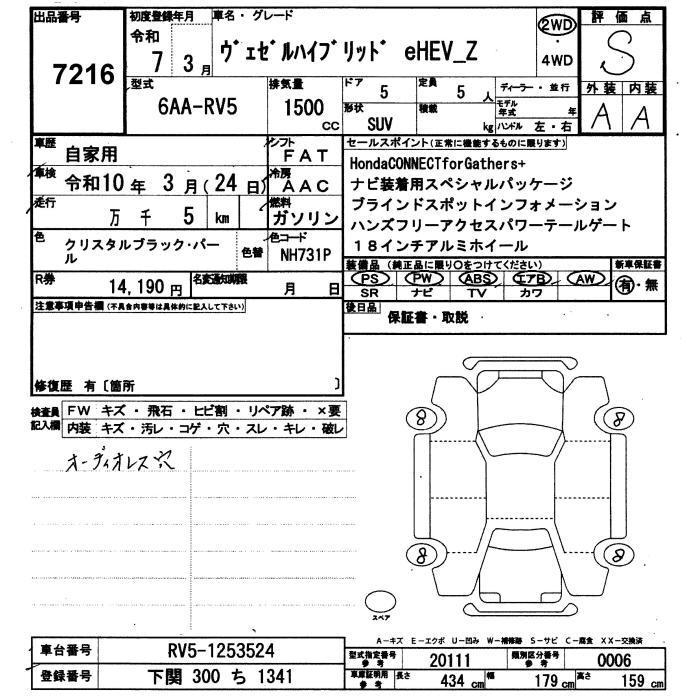 出品番号
7216
初度登録年月
令和
7 3月
車名・グレード
ヴェゼルハイブリッド eHEV_Z
2WD
・
4WD
評価点
S
外装 内装
A A
型式
6AA-RV5
排気量
1500
CC
ドア
5
定員
5 人
ディーラー・並行
形状
SUV
積載
kg
モデル年式 年
ハンドル 左・右
車歴
自家用
シフト
FAT
車検
令和10年 3月(24日)
冷房
AAC
走行
万 千 5 km
燃料
ガソリン
色
クリスタルブラック・パール
色替
色コード
NH731P
R券
14,190円
名変通知期限
月 日
セールスポイント(正常に機能するものに限ります)
HondaCONNECTforGathers+
ナビ装着用スペシャルパッケージ
ブラインドスポットインフォメーション
ハンズフリーアクセスパワーテールゲート
18インチアルミホイール
装備品(純正品に限り○をつけてください)
PS PW ABS エアB AW
SR ナビ TV カワ
新車保証書
有・無
後日品
保証書・取説
注意事項申告欄(不具合内容等は具体的に記入して下さい)
修復歴 有〔箇所 〕
検査員記入欄
FW キズ・飛石・ヒビ割・リペア跡・×要
内装 キズ・汚レ・コゲ・穴・スレ・キレ・破レ
オーディオレス穴
8 8
8 8
スペア
A―キズ E―エクボ U―凹み W―補修跡 S―サビ C―腐食 XX―交換済
車台番号
RV5-1253524
登録番号
下関 300 ち 1341
型式指定番号
参考
20111
類別区分番号
参考
0006
車庫証明用
参考
長さ 434 cm
幅 179 cm
高さ 159 cm